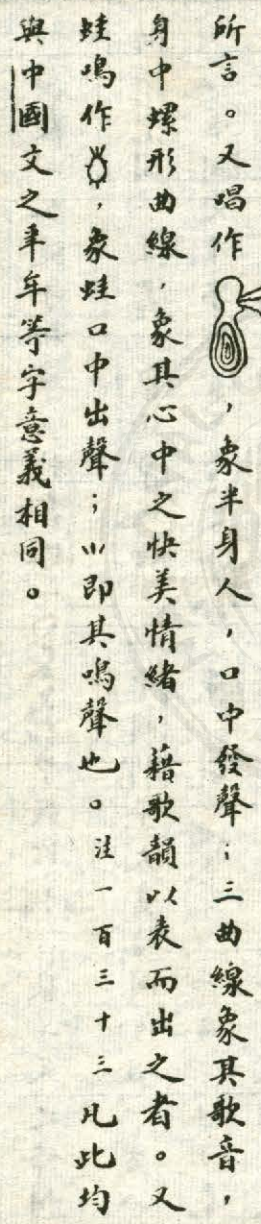 所言。又唱作，象半身人，口中發聲；三曲線象其歌音，
身中螺形曲線，象其心中之快美情緒，藉歌韻以表而出之者。又
蛙鳴作，象蛙口中出聲；小即其鳴聲也。注一百三十三凡此均
與中國文之羊年等字意義相同。